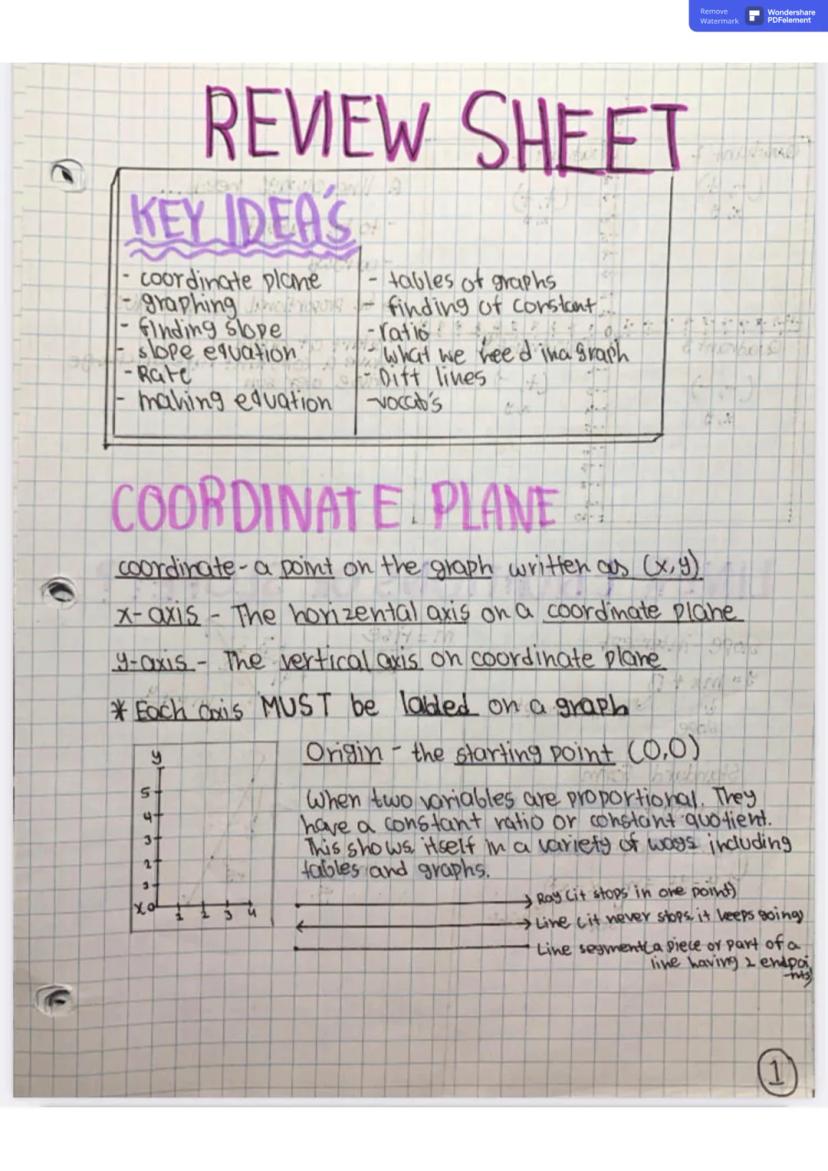 Remove
Watermark
Wondershare
PDFelement
REVIEW SHEET
KEY IDEA'S
- coordinate plane
- graphing
- finding slope
- slope equation
- Rate
- making equation
- tables of graphs
- finding of constant
- ratio
- What we need in a graph
- Diff lines
- vocab's
COORDINATE PLANE
coordinate - a point on the graph written as (x,y)
x-axis - The horizental axis on a coordinate plane
y-axis - The vertical axis on coordinate plane
* Each axis MUST be labled on a graph
Origin - the starting point (0,0)
When two variables are proportional. They
have a constant ratio or constant quotient.
This shows itself in a variety of ways including
tables and graphs.
y
5
4
3
2
1
x 0 1 2 3 4
Ray (it stops in one point)
Line (it never stops it keeps going)
Line segment (a piece or part of a
line having 2 endpoi
-nts)
1